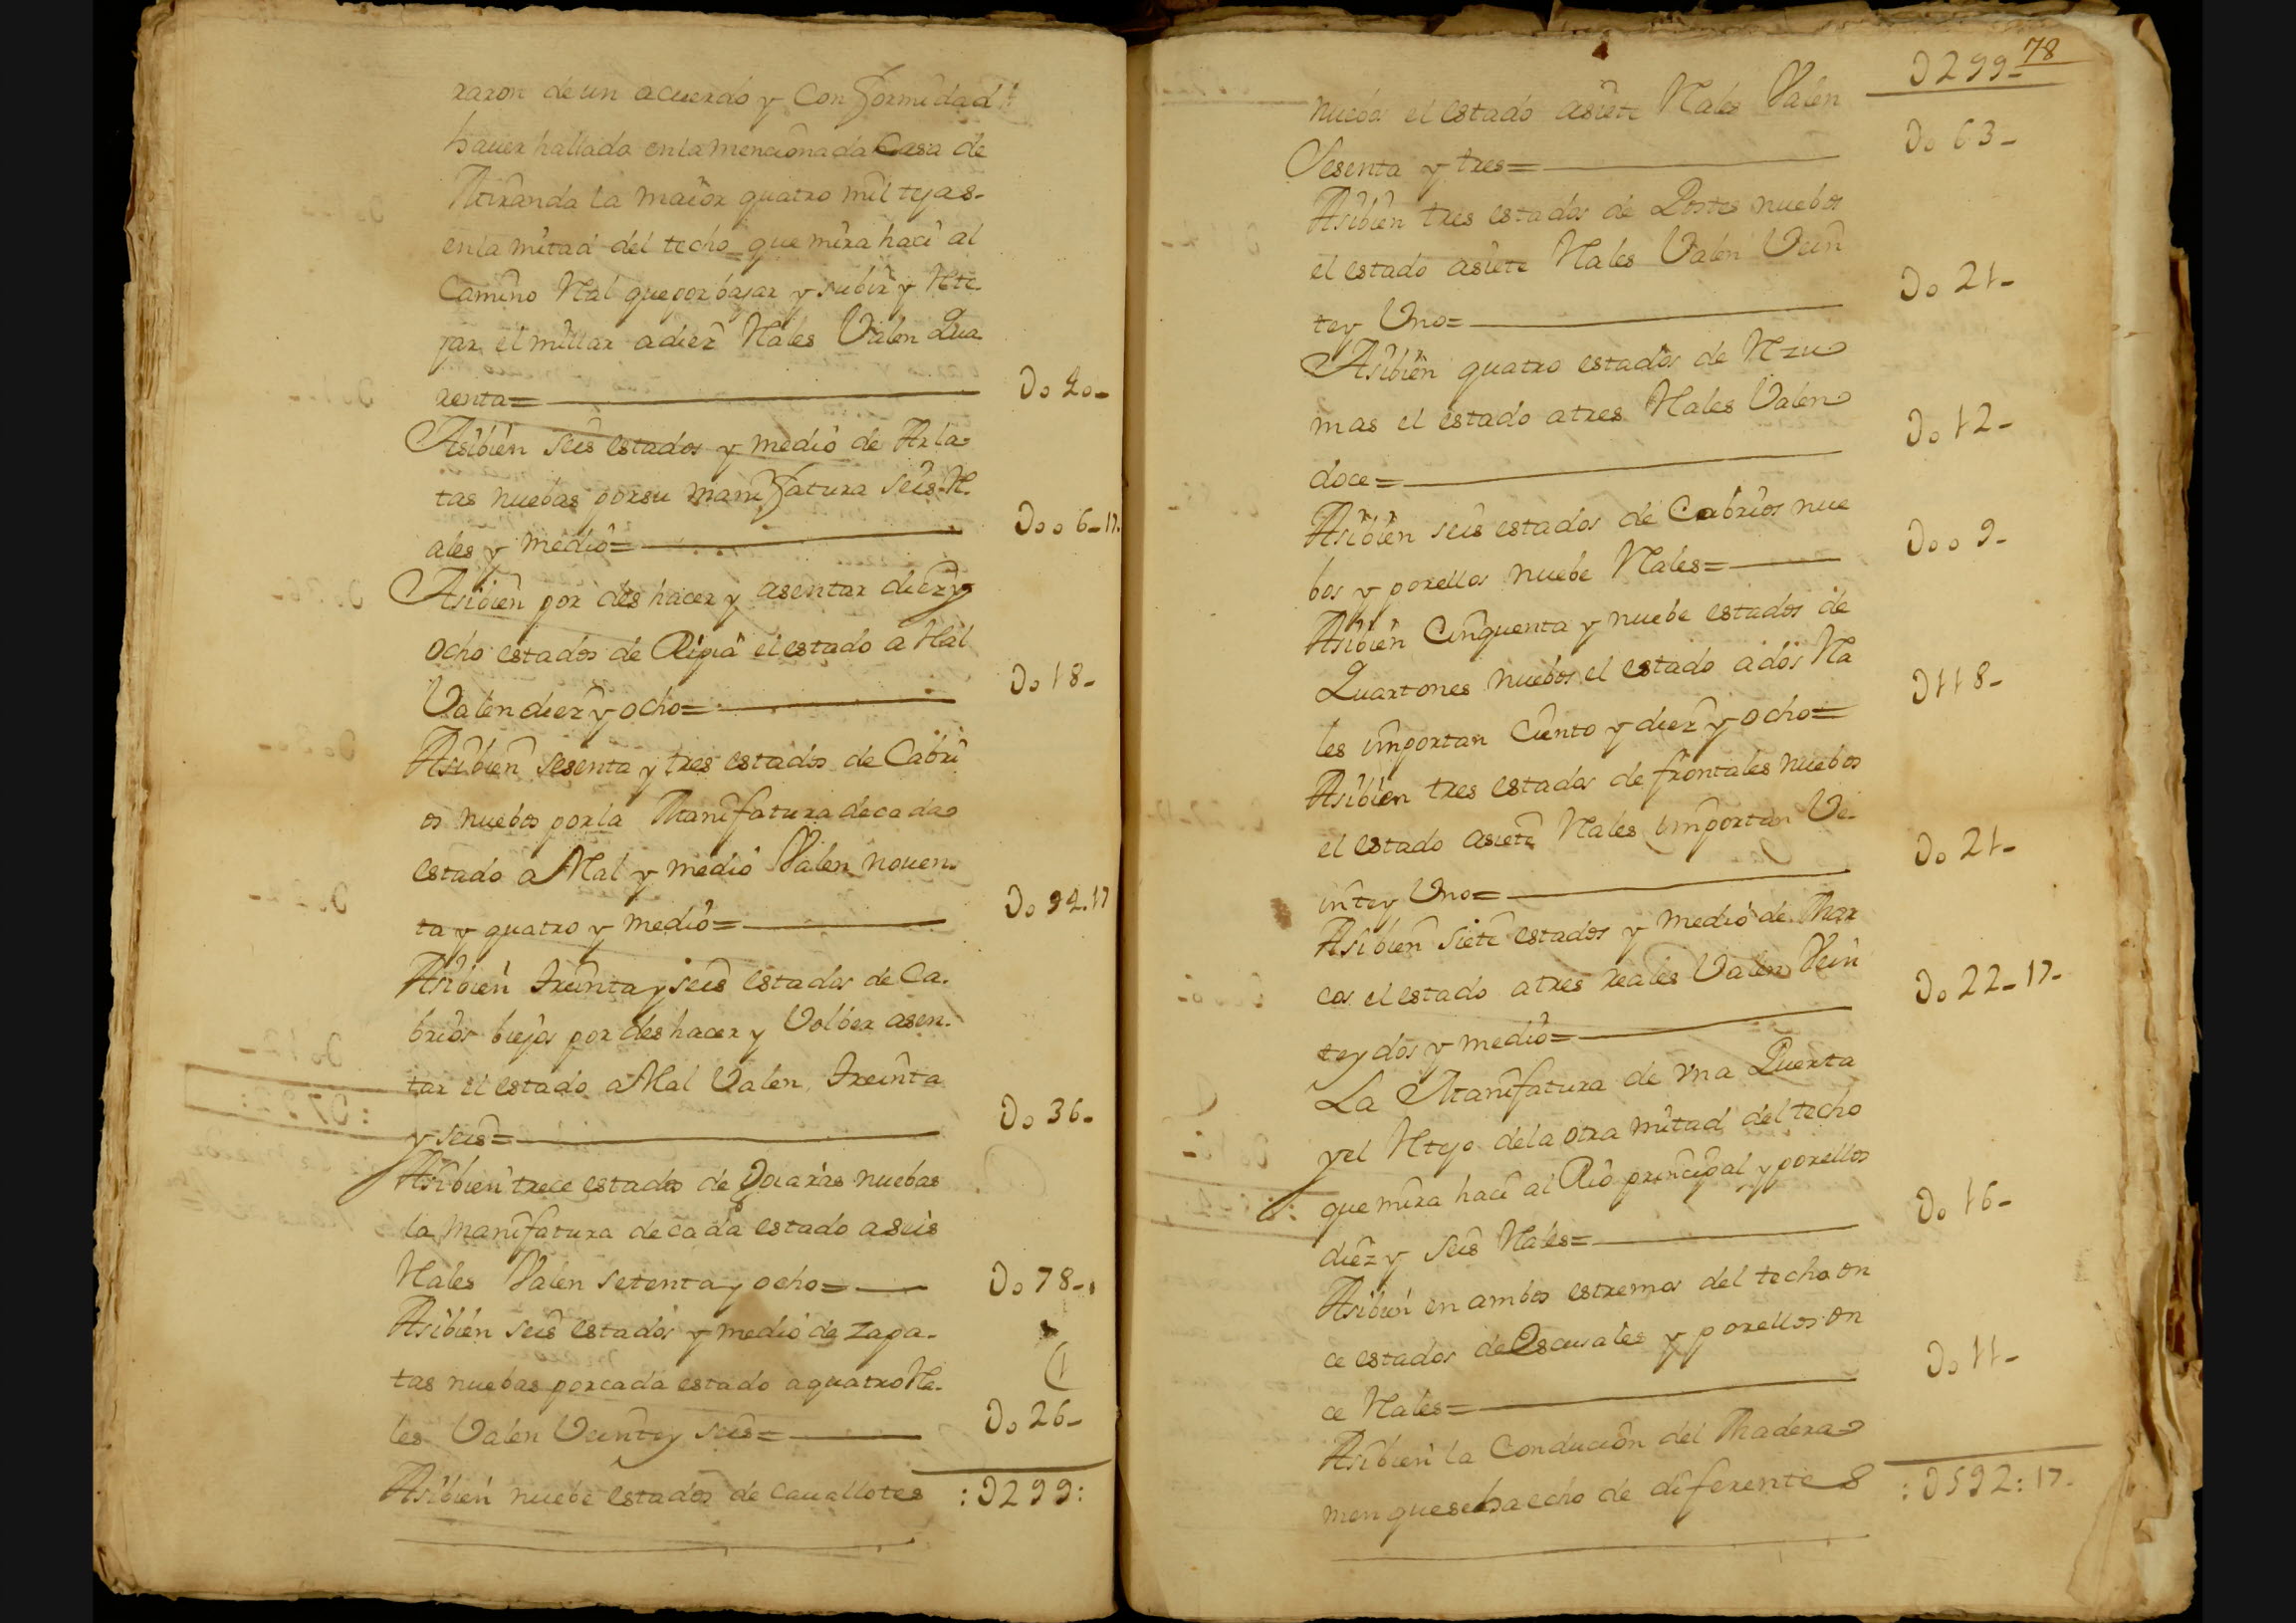 raron de un acuerdo y Conformidad
hauer hallado en la mencionada Casa de
Miranda la maior quatro mil tejas
en la mitad del techo que mira hacî al
Camino Rral que por bajar y subir y Rte
jar el millar a diez Rales Valen Qua
renta= Do 40-
Asibien seis estados y medio de Arla
tas nuebas por su manifatura seis R.
ales y medio= Doo 6-17.
Asibien por deshacer y asentar diez y
ocho estados de Ripia el estado a Rral
Valen diez y ocho= Do 18-
Asibien sesenta y tres estados de Cabri
os nuebos por la Manifatura de cada
estado a Rral y medio Valen nouen
ta y quatro y medio= Do 94.17
Asibien treinta y seis estados de Ca.
brios biejos por deshacer y Volber asen.
tar el estado a Rral Valen treinta
y seis= Do 36-
Asibien trece estados de Goiaras nuebas
la manifatura de cada estado a seis
Rales Valen setenta y ocho= Do 78-
Asibien seis estados y medio de zapa.
tas nuebas por cada estado a quatro Ra.
les Valen Veinte y seis= Do 26-
Asibien nuebe estados de cauallotes :D299:
78
D299-
nuebos el estado a siete Rales Valen
Sesenta y tres= Do 63-
Asibien tres estados de Postes nuebos
el estado a siete Rales Valen Vein
te y Uno= Do 21-
Asibien quatro estados de Rzu
mas el estado a tres Rales Valen
doce= Do 12-
Asibien seis estados de Cabrios nue
bos y por ellos nuebe Rales= Doo 9-
Asibien Cinquenta y nuebe estados de
Quartones nuebos el estado a dos Ra
les importan Ciento y diez y ocho= D118-
Asibien tres estados de frontales nuebos
el estado a siete Rales importan Ve
inte y Uno= Do 21-
Asibien siete estados y medio de Mar
cos el estado a tres reales Valen Vein
te y dos y medio= Do 22-17-
La Manifatura de vna Puerta
y el Rtejo de la otra mitad del techo
que mira hacî al Rio principal y por ellos
diez y seis Rales= Do 16-
Asibien en ambos estremos del techo on
ce estados de Escusales y por ellos on
ce Rales= Do 11-
Asibien la Conducion del Madera
men que se ha echo de diferentes :D592:17-